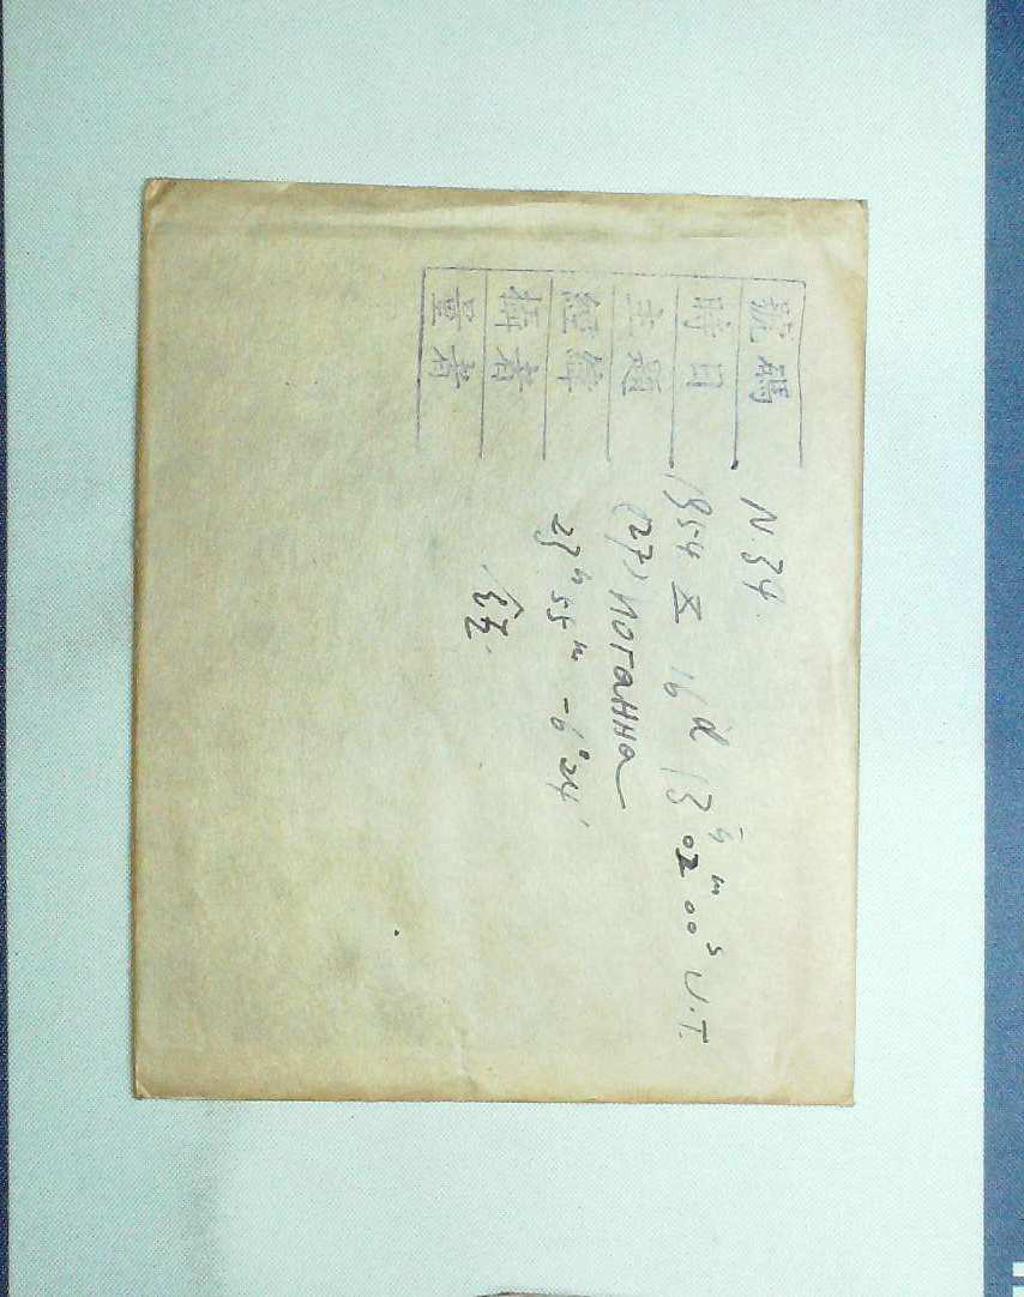 號碼 N.34
時日 1954 X 16ᵈ 13ʰ 02ᵐ 00ˢ U.T.
主題 (127) Иоганна
經緯 23ʰ 55ᵐ -6°24'
攝者
量者